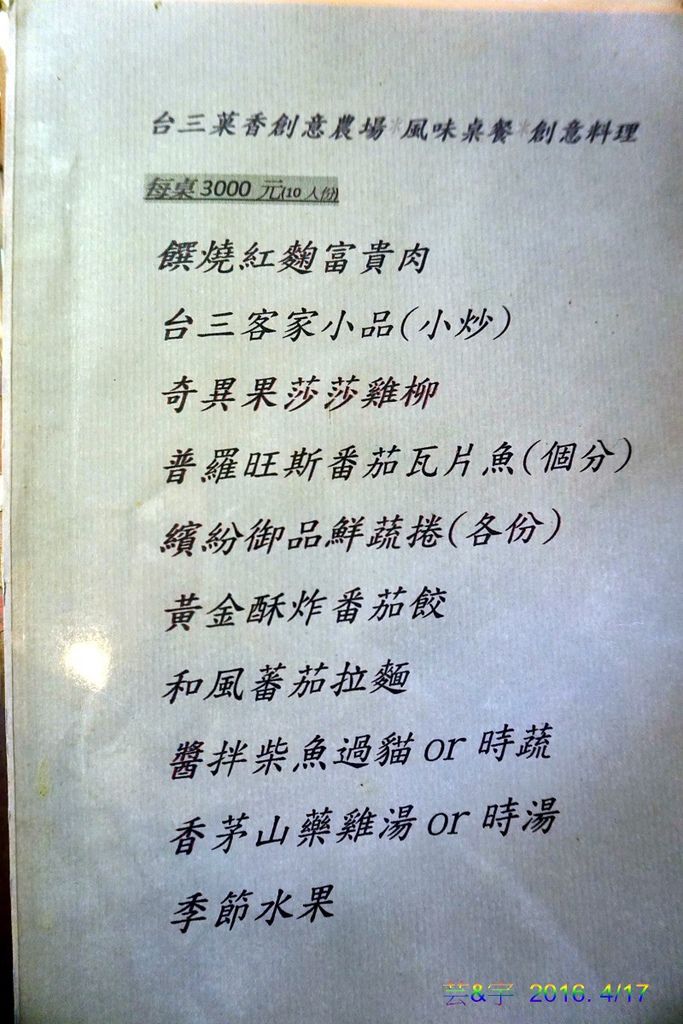 台三菓香創意農場*風味桌餐*創意料理
每桌3000 元(10 人份)
饌燒紅麴富貴肉
台三客家小品(小炒)
奇異果莎莎雞柳
普羅旺斯番茄瓦片魚(個分)
繽紛御品鮮蔬捲(各份)
黃金酥炸番茄餃
和風蕃茄拉麵
醬拌柴魚過貓 or 時蔬
香茅山藥雞湯 or 時湯
季節水果
芸&宇 2016. 4/17